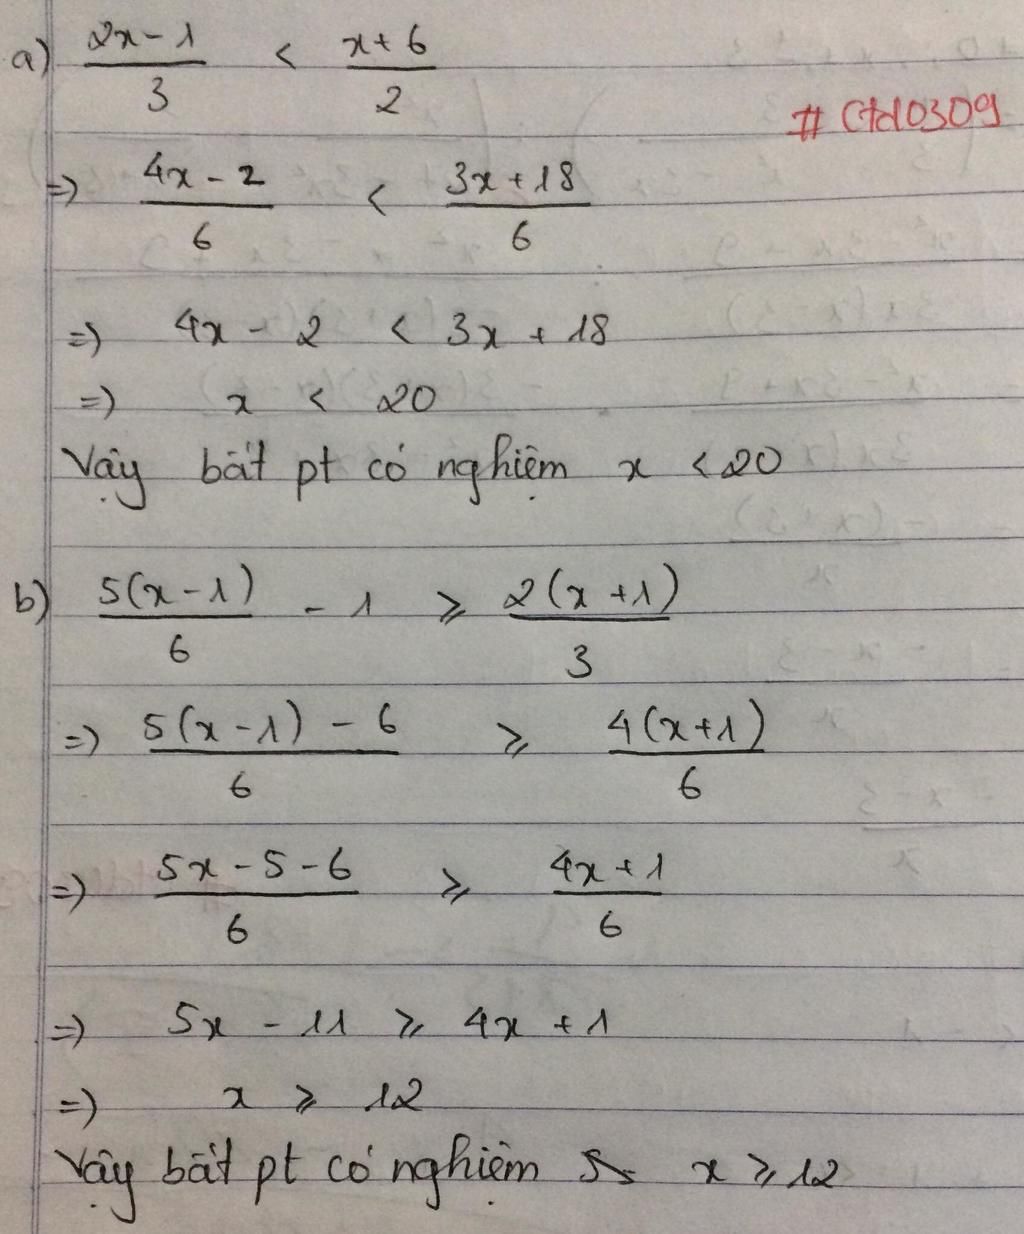 a) \frac{2x-1}{3} < \frac{x+6}{2}
# Ctd0309
=) \frac{4x-2}{6} < \frac{3x+18}{6}
=) 4x - 2 < 3x + 18
=) x < 20
Vậy bất pt có nghiệm x < 20
b) \frac{5(x-1)}{6} - 1 ⩾ \frac{2(x+1)}{3}
=) \frac{5(x-1)-6}{6} ⩾ \frac{4(x+1)}{6}
=) \frac{5x-5-6}{6} ⩾ \frac{4x+1}{6}
=) 5x - 11 ⩾ 4x + 1
=) x ⩾ 12
Vậy bất pt có nghiệm x ⩾ 12